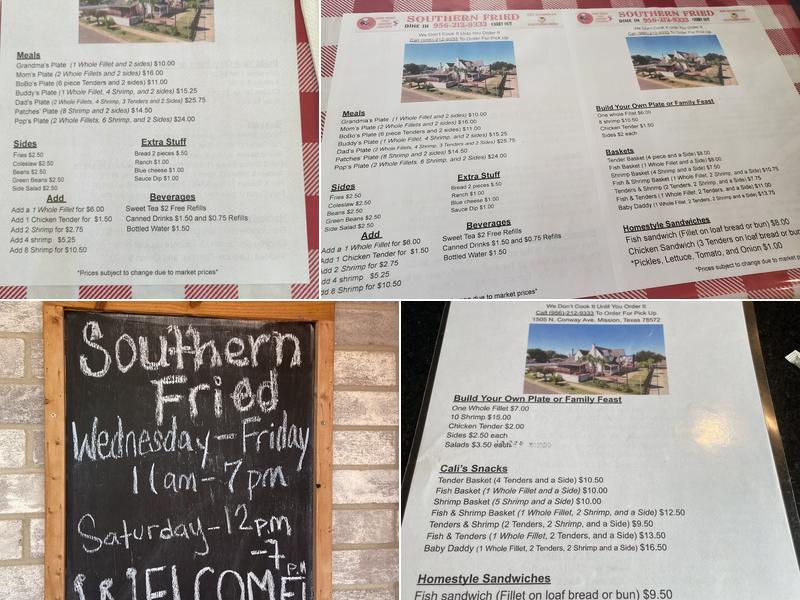 Meals
Grandma's Plate (1 Whole Fillet and 2 sides) $10.00
Mom's Plate (2 Whole Fillets and 2 sides) $16.00
BoBo's Plate (6 piece Tenders and 2 sides) $11.00
Buddy's Plate (1 Whole Fillet, 4 Shrimp, and 2 sides) $15.25
Dad's Plate (2 Whole Fillets, 4 Shrimp, 3 Tenders and 2 sides) $25.75
Patches' Plate (8 Shrimp and 2 sides) $14.50
Pop's Plate (2 Whole Fillets, 6 Shrimp, and 2 Sides) $24.00
Sides
Fries $2.50
Coleslaw $2.50
Beans $2.50
Green Beans $2.50
Side Salad $2.50
Extra Stuff
Bread 2 pieces $.50
Ranch $1.00
Blue cheese $1.00
Sauce Dip $1.00
Add
Add a 1 Whole Fillet for $6.00
Add 1 Chicken Tender for $1.50
Add 2 Shrimp for $2.75
Add 4 shrimp $5.25
Add 8 Shrimp for $10.50
Beverages
Sweet Tea $2 Free Refills
Canned Drinks $1.50 and $0.75 Refills
Bottled Water $1.50
*Prices subject to change due to market prices*
SOUTHERN FRIED
DINE IN 956-212-9333 CARRY OUT
We Don't Cook It Until You Order It
Call (956)-212-9333 To Order For Pick Up
Meals
Grandma's Plate (1 Whole Fillet and 2 sides) $10.00
Mom's Plate (2 Whole Fillets and 2 sides) $16.00
BoBo's Plate (6 piece Tenders and 2 sides) $11.00
Buddy's Plate (1 Whole Fillet, 4 Shrimp, and 2 sides) $15.25
Dad's Plate (2 Whole Fillets, 4 Shrimp, 3 Tenders and 2 sides) $25.75
Patches' Plate (8 Shrimp and 2 sides) $14.50
Pop's Plate (2 Whole Fillets, 6 Shrimp, and 2 Sides) $24.00
Sides
Fries $2.50
Coleslaw $2.50
Beans $2.50
Green Beans $2.50
Side Salad $2.50
Extra Stuff
Bread 2 pieces $.50
Ranch $1.00
Blue cheese $1.00
Sauce Dip $1.00
Add
Add a 1 Whole Fillet for $6.00
Add 1 Chicken Tender for $1.50
Add 2 Shrimp for $2.75
dd 4 shrimp $5.25
dd 8 Shrimp for $10.50
Beverages
Sweet Tea $2 Free Refills
Canned Drinks $1.50 and $0.75 Refills
Bottled Water $1.50
ect to change due to market prices*
SOUTHERN FRIED
DINE IN 956-212-9333 CARRY OUT
We Don't Cook It Until You Order It
Call (956)-212-9333 To Order For Pick Up
Build Your Own Plate or Family Feast
One whole Fillet $6.00
8 shrimp $10.50
Chicken Tender $1.50
Sides $2 each
Baskets
Tender Basket (4 piece and a Side) $8.00
Fish Basket (1 Whole Fillet and a Side) $8.00
Shrimp Basket (4 Shrimp and a Side) $7.50
Fish & Shrimp Basket (1 Whole Fillet, 2 Shrimp, and a Side)
Tenders & Shrimp (2 Tenders, 2 Shrimp, and a Side) $7.75
Fish & Tenders (1 Whole Fillet, 2 Tenders, and a Side) $11.00
Baby Daddy (1 Whole Fillet, 2 Tenders, 2 Shrimp and a Side) $13.75
Homestyle Sandwiches
Fish sandwich (Fillet on loaf bread or bun) $8.00
Chicken Sandwich (3 Tenders on loaf bread or bun
*Pickles, Lettuce, Tomato, and Onion $1.00
*Prices subject to change due to market
Southern
Fried
Wednesday-Friday
11am-7pm
Saturday-12p.m
-7 p.m
WELCOME!
We Don't Cook It Until You Order It
Call (956)-212-9333 To Order For Pick Up
1505 N. Conway Ave, Mission, Texas 78572
Build Your Own Plate or Family Feast
One Whole Fillet $7.00
10 Shrimp $15.00
Chicken Tender $2.00
Sides $2.50 each
Salads $3.50 each
Cali's Snacks
Tender Basket (4 Tenders and a Side) $10.50
Fish Basket (1 Whole Fillet and a Side) $10.00
Shrimp Basket (5 Shrimp and a Side) $10.00
Fish & Shrimp Basket (1 Whole Fillet, 2 Shrimp, and a Side) $12.50
Tenders & Shrimp (2 Tenders, 2 Shrimp, and a Side) $9.50
Fish & Tenders (1 Whole Fillet, 2 Tenders, and a Side) $13.50
Baby Daddy (1 Whole Fillet, 2 Tenders, 2 Shrimp and a Side) $16.50
Homestyle Sandwiches
Fish sandwich (Fillet on loaf bread or bun) $9.50